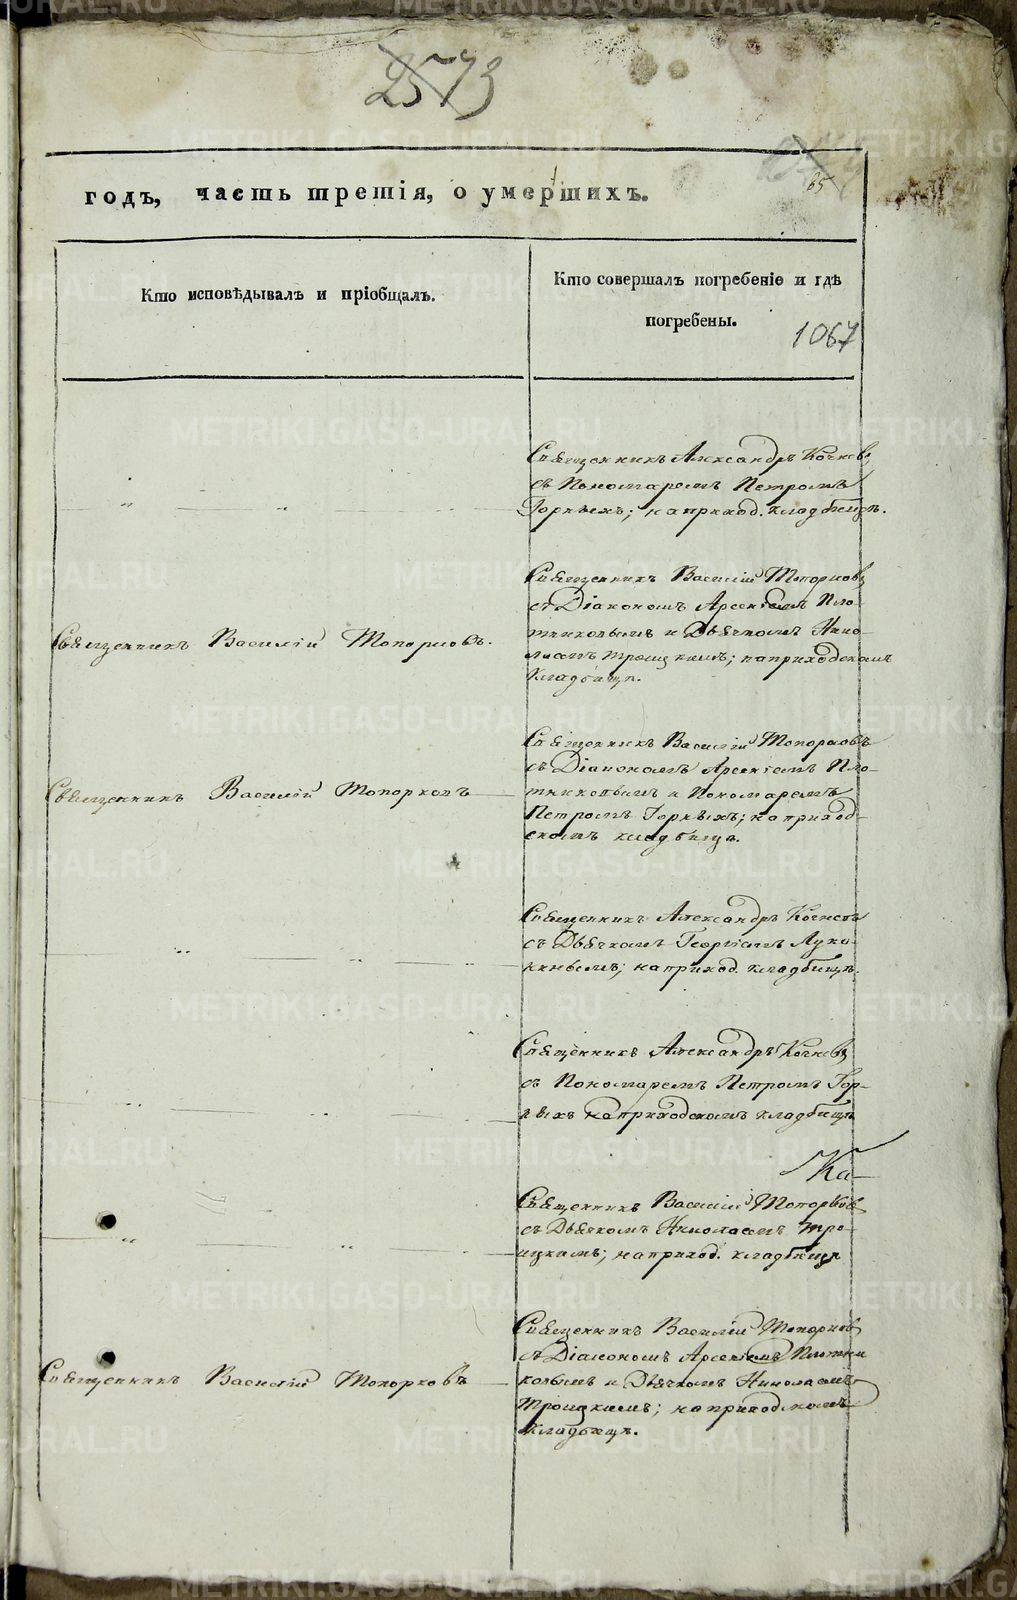 2573
годъ, часть третія, о умершихъ.
65
Кто исповѣдывалъ и пріобщалъ.
Кто совершалъ погребеніе и гдѣ
погребены.
1067
Священникъ Александръ Кочневъ
съ Пономаремъ Петромъ
Горныхъ; на приход. кладбищѣ.
Священникъ Василій Топорковъ
съ Діакономъ Арсеніемъ Пло-
тниковымъ и Дьячкомъ Нико-
лаемъ Троицкимъ; на приходскомъ
Кладбищѣ.
Священникъ Василій Топорковъ.
Священникъ Василій Топорковъ
съ Діакономъ Арсеніемъ Пло-
тниковымъ и Пономаремъ
Петромъ Горныхъ; на приход-
скомъ кладбищѣ.
Священникъ Василій Топорковъ
Священникъ Александръ Кочневъ
съ Дьячкомъ Георгіемъ Лука-
нинымъ; на приход. кладбищѣ.
Священникъ Александръ Кочневъ
съ Пономаремъ Петромъ Гор-
ныхъ на приходскомъ кладбищѣ
Ка-
Священникъ Василій Топорковъ
съ Дьячкомъ Николаемъ Тро-
ицкимъ; на приход. кладбищѣ
Священникъ Василій Топорковъ
съ Діакономъ Арсеніемъ Плотни
ковымъ и Дьячкомъ Николаемъ
Троицкимъ; на приходскомъ
Кладбищѣ.
Священникъ Василій Топорковъ
METRIKI.GASO-URAL.RU